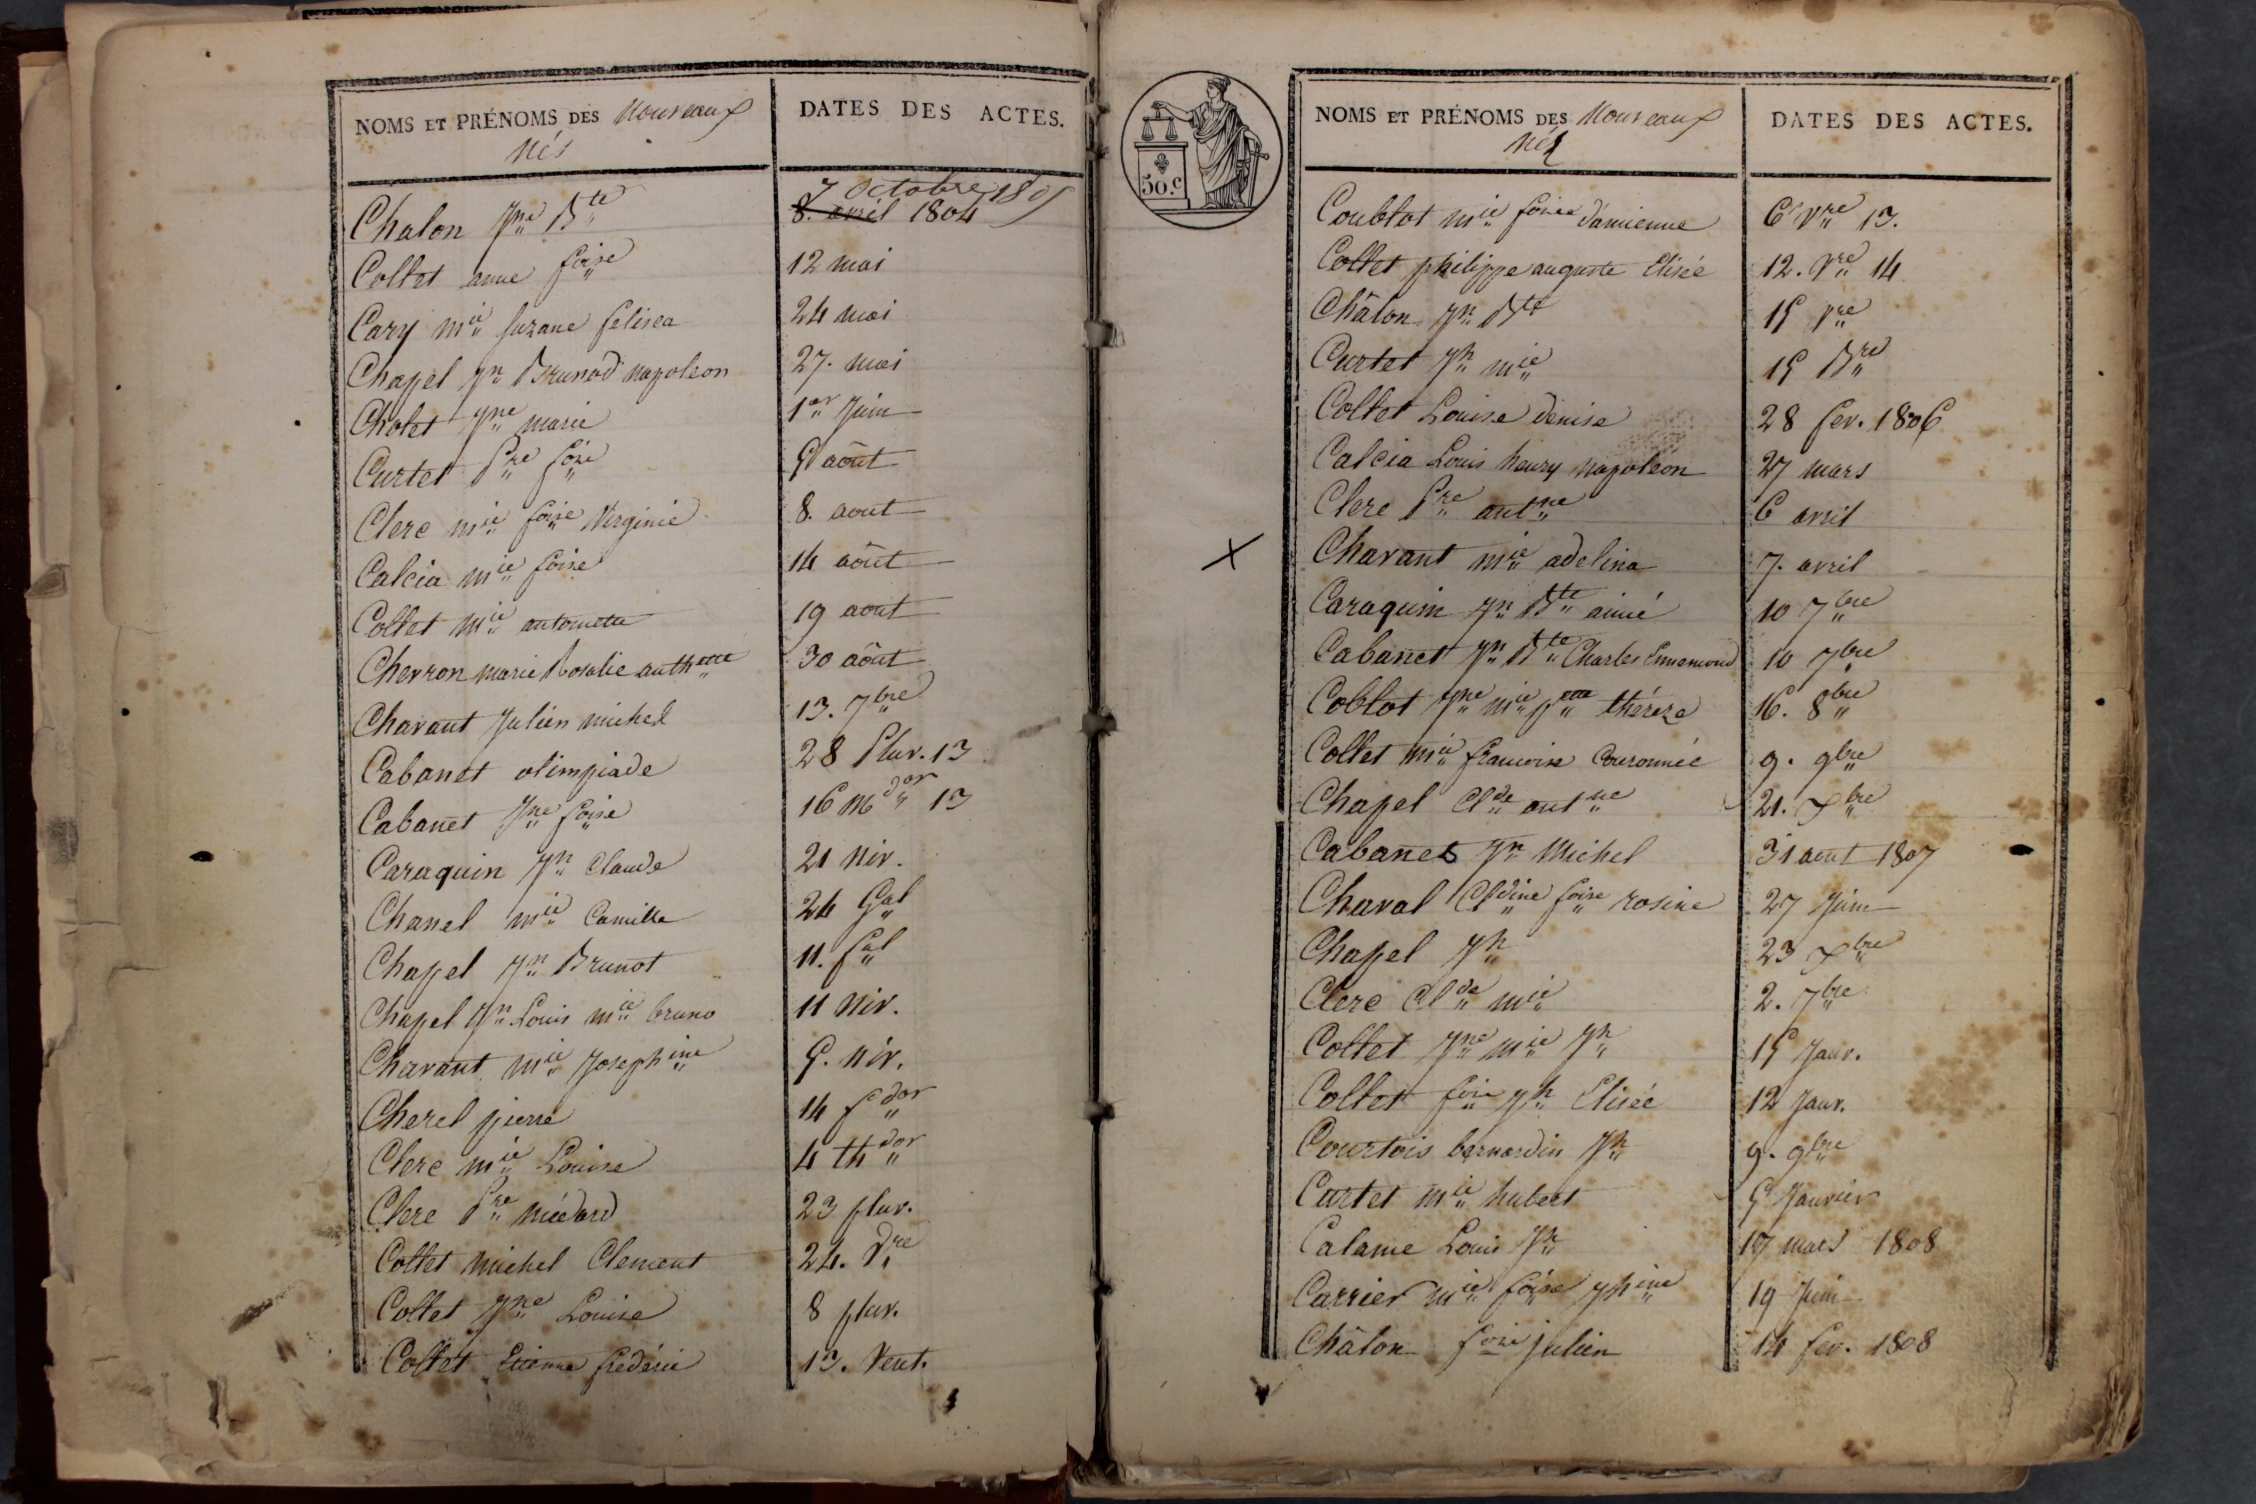 NOMS ET PRÉNOMS DES Nouveaux
Nés
DATES DES ACTES.
Chalon Jne Bte 7 octobre 1805
8. avril 1804
Collet anne foise 12 mai
Cary mie Suzane felisea 24 mai
Chapel Jn Brunod napoleon 27. mai
Cholet Jne marie 1er Juin
Curtet Pre foise 5 aôut
Clerc mie foise Virginie 8. aout
Calcia mie foise 14 aôut
Collet mie antoinette 19 aout
Chevron marie Rosalie anthette 30 aôut
Chavant Julien michel 13. 7bre
Cabanet olimpiade 28 Pluv. 13
Cabanet Jne foise 16 mdor 13
Caraquin Jn Claude 21 niv.
Chanel mie Camille 24 Gal
Chapel Jn Brunot 11. fal
Chapel Jn Louis mie bruno 11 niv.
Chavant mie Josephine 5. niv.
Cherel pierre 14 fdor
Clerc mie Louise 4 thdor
Clerc Pre médard 23 pluv.
Collet michel Clement 24. Vre
Collet Jne Louise 8 pluv.
Collet Etienne frédéric 13. Vent.
50.c
NOMS ET PRÉNOMS DES Nouveaux
Nés
DATES DES ACTES.
Coublot mie foise damienne 6 Vre 13.
Collet philippe auguste Elisée 12. Vre 14
Châlon Jn Bte 15 Vre
Curtet Jh mie 15 Bre
Collet Louise denise 28 fev. 1806
Calcia Louis henry napoleon 27 mars
Clerc Pre antne 6 avril
X Chavant mie adelina 7. avril
Caraquin Jn Bte aimé 10 7bre
Cabanet Jn Bte Charles Ennemond 10 7bre
Coblot Jne mie pette théreze 16. 8bre
Collet mie francoise Couronnée 9. 9bre
Chapel Clde antne 21. Xbre
Cabanet Jn Michel 31 aout 1807
Chaval Cldine foise rosine 27 Juin
Chapel Jh 23 Xbre
Clerc Clde mie 2. 7bre
Collet Jne mie Jh 15 Janv.
Collet fois Jh Elisée 12 Janv.
Courtois bernardin Jh 9. 9bre
Curtet mie hubert 5 Janvier
Calame Louis Jh 17 mars 1808
Carrier mie foise Jphine 19 Juin
Châlon fois julien 14 fev. 1808